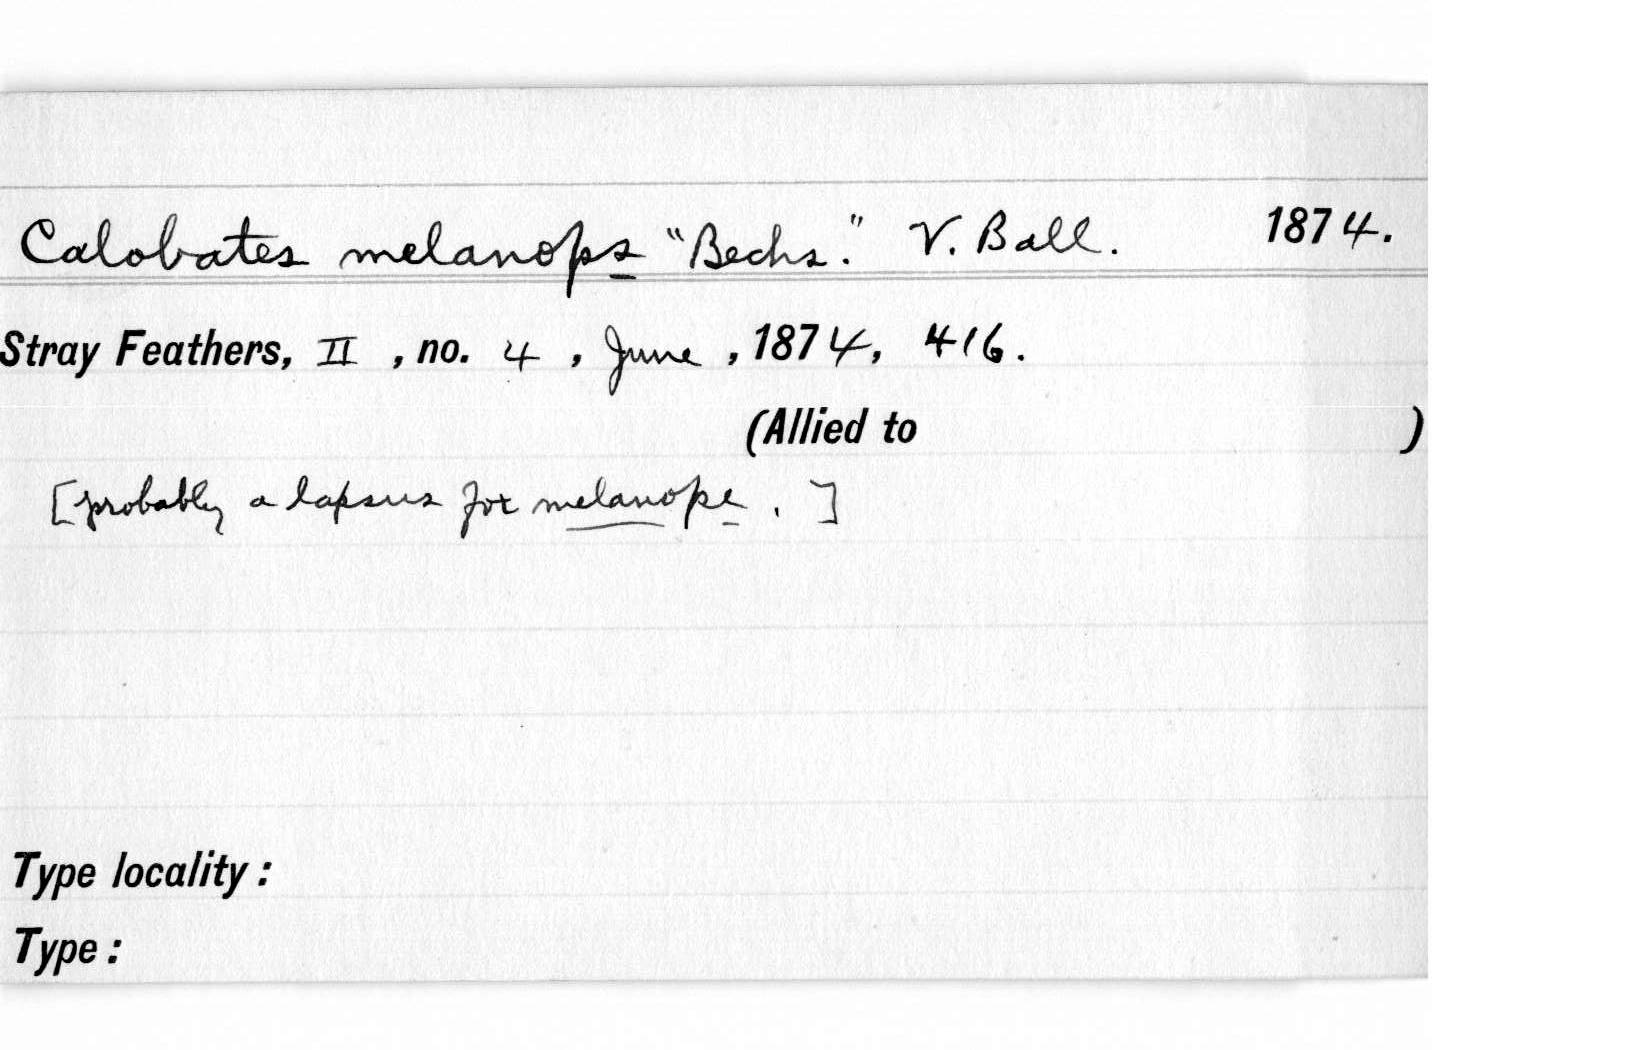 Calobates melanops "Bechs." V. Ball. 1874.
Stray Feathers, II, no. 4, June, 1874, 416.
(Allied to )
[probably a lapsus for melanope.]
Type locality:
Type: